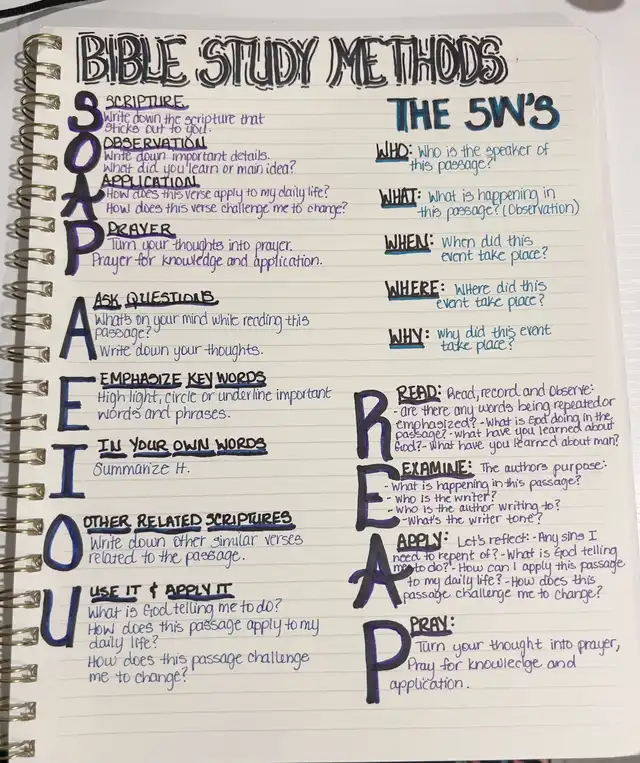 BIBLE STUDY METHODS
S SCRIPTURE
Write down the scripture that
sticks out to you.
O OBSERVATION
Write down important details.
What did you learn or main idea?
A APPLICATION
How does this verse apply to my daily life?
How does this verse challenge me to change?
P PRAYER
Turn your thoughts into prayer.
Prayer for knowledge and application.
A ASK QUESTIONS
What's on your mind while reading this
passage?
Write down your thoughts.
E EMPHASIZE KEY WORDS
High light, circle or underline important
words and phrases.
I IN YOUR OWN WORDS
Summarize it.
O OTHER RELATED SCRIPTURES
Write down other similar verses
related to the passage.
U USE IT & APPLY IT
What is God telling me to do?
How does this passage apply to my
daily life?
How does this passage challenge
me to change?
THE 5W'S
WHO: Who is the speaker of
this passage?
WHAT: What is happening in
this passage? (Observation)
WHEN: When did this
event take place?
WHERE: Where did this
event take place?
WHY: Why did this event
take place?
R READ: Read, record and Observe:
- are there any words being repeated or
emphasized? - What is God doing in the
passage? - What have you learned about
God? - What have you learned about man?
E EXAMINE: The authors purpose:
- What is happening in this passage?
- Who is the writer?
- Who is the author writing to?
- What's the writer tone?
A APPLY: Let's reflect: - Any sins I
need to repent of? - What is God telling
me to do? - How can I apply this passage
to my daily life? - How does this
passage challenge me to change?
P PRAY:
Turn your thought into prayer,
Pray for knowledge and
application.